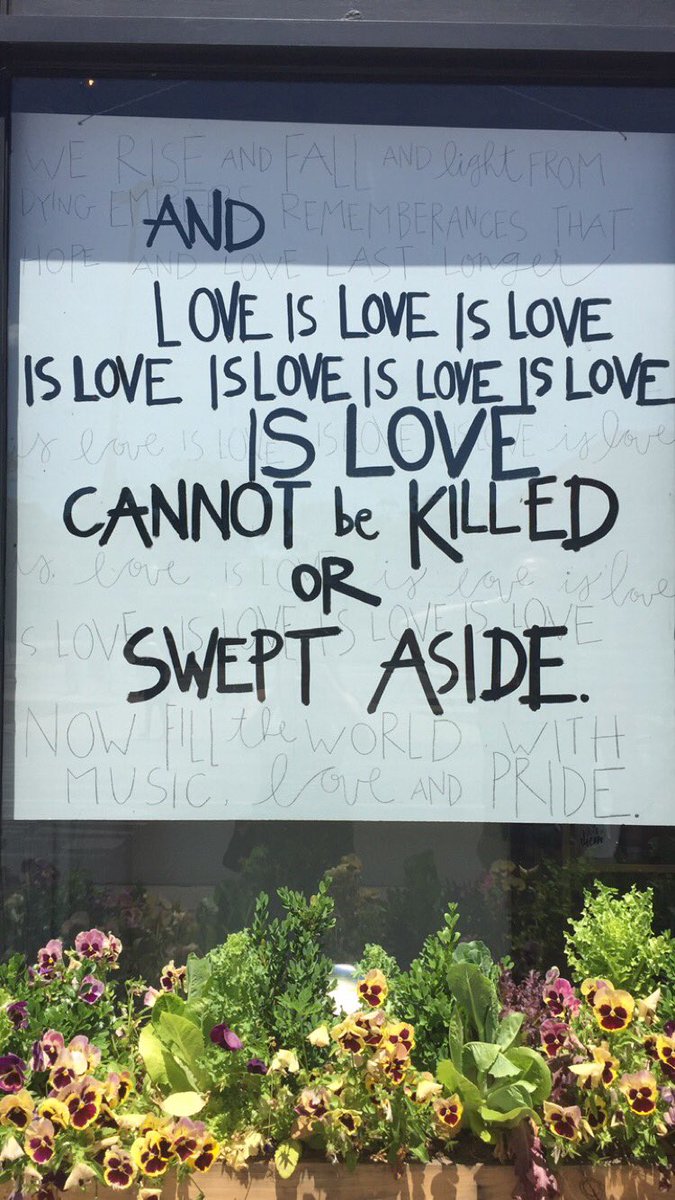 WE RISE AND FALL AND light FROM
DYING EMBERS REMEMBERANCES THAT
AND
HOPE AND LOVE LAST Longer
LOVE IS LOVE IS LOVE
IS LOVE IS LOVE IS LOVE IS LOVE
is love IS LOVE IS LOVE IS LOVE is love
IS LOVE
CANNOT be KILLED
is love IS LOVE is love is love
OR
S LOVE IS LOVE IS LOVE IS LOVE
SWEPT ASIDE.
NOW FILL the WORLD WITH
MUSIC, love AND PRIDE.